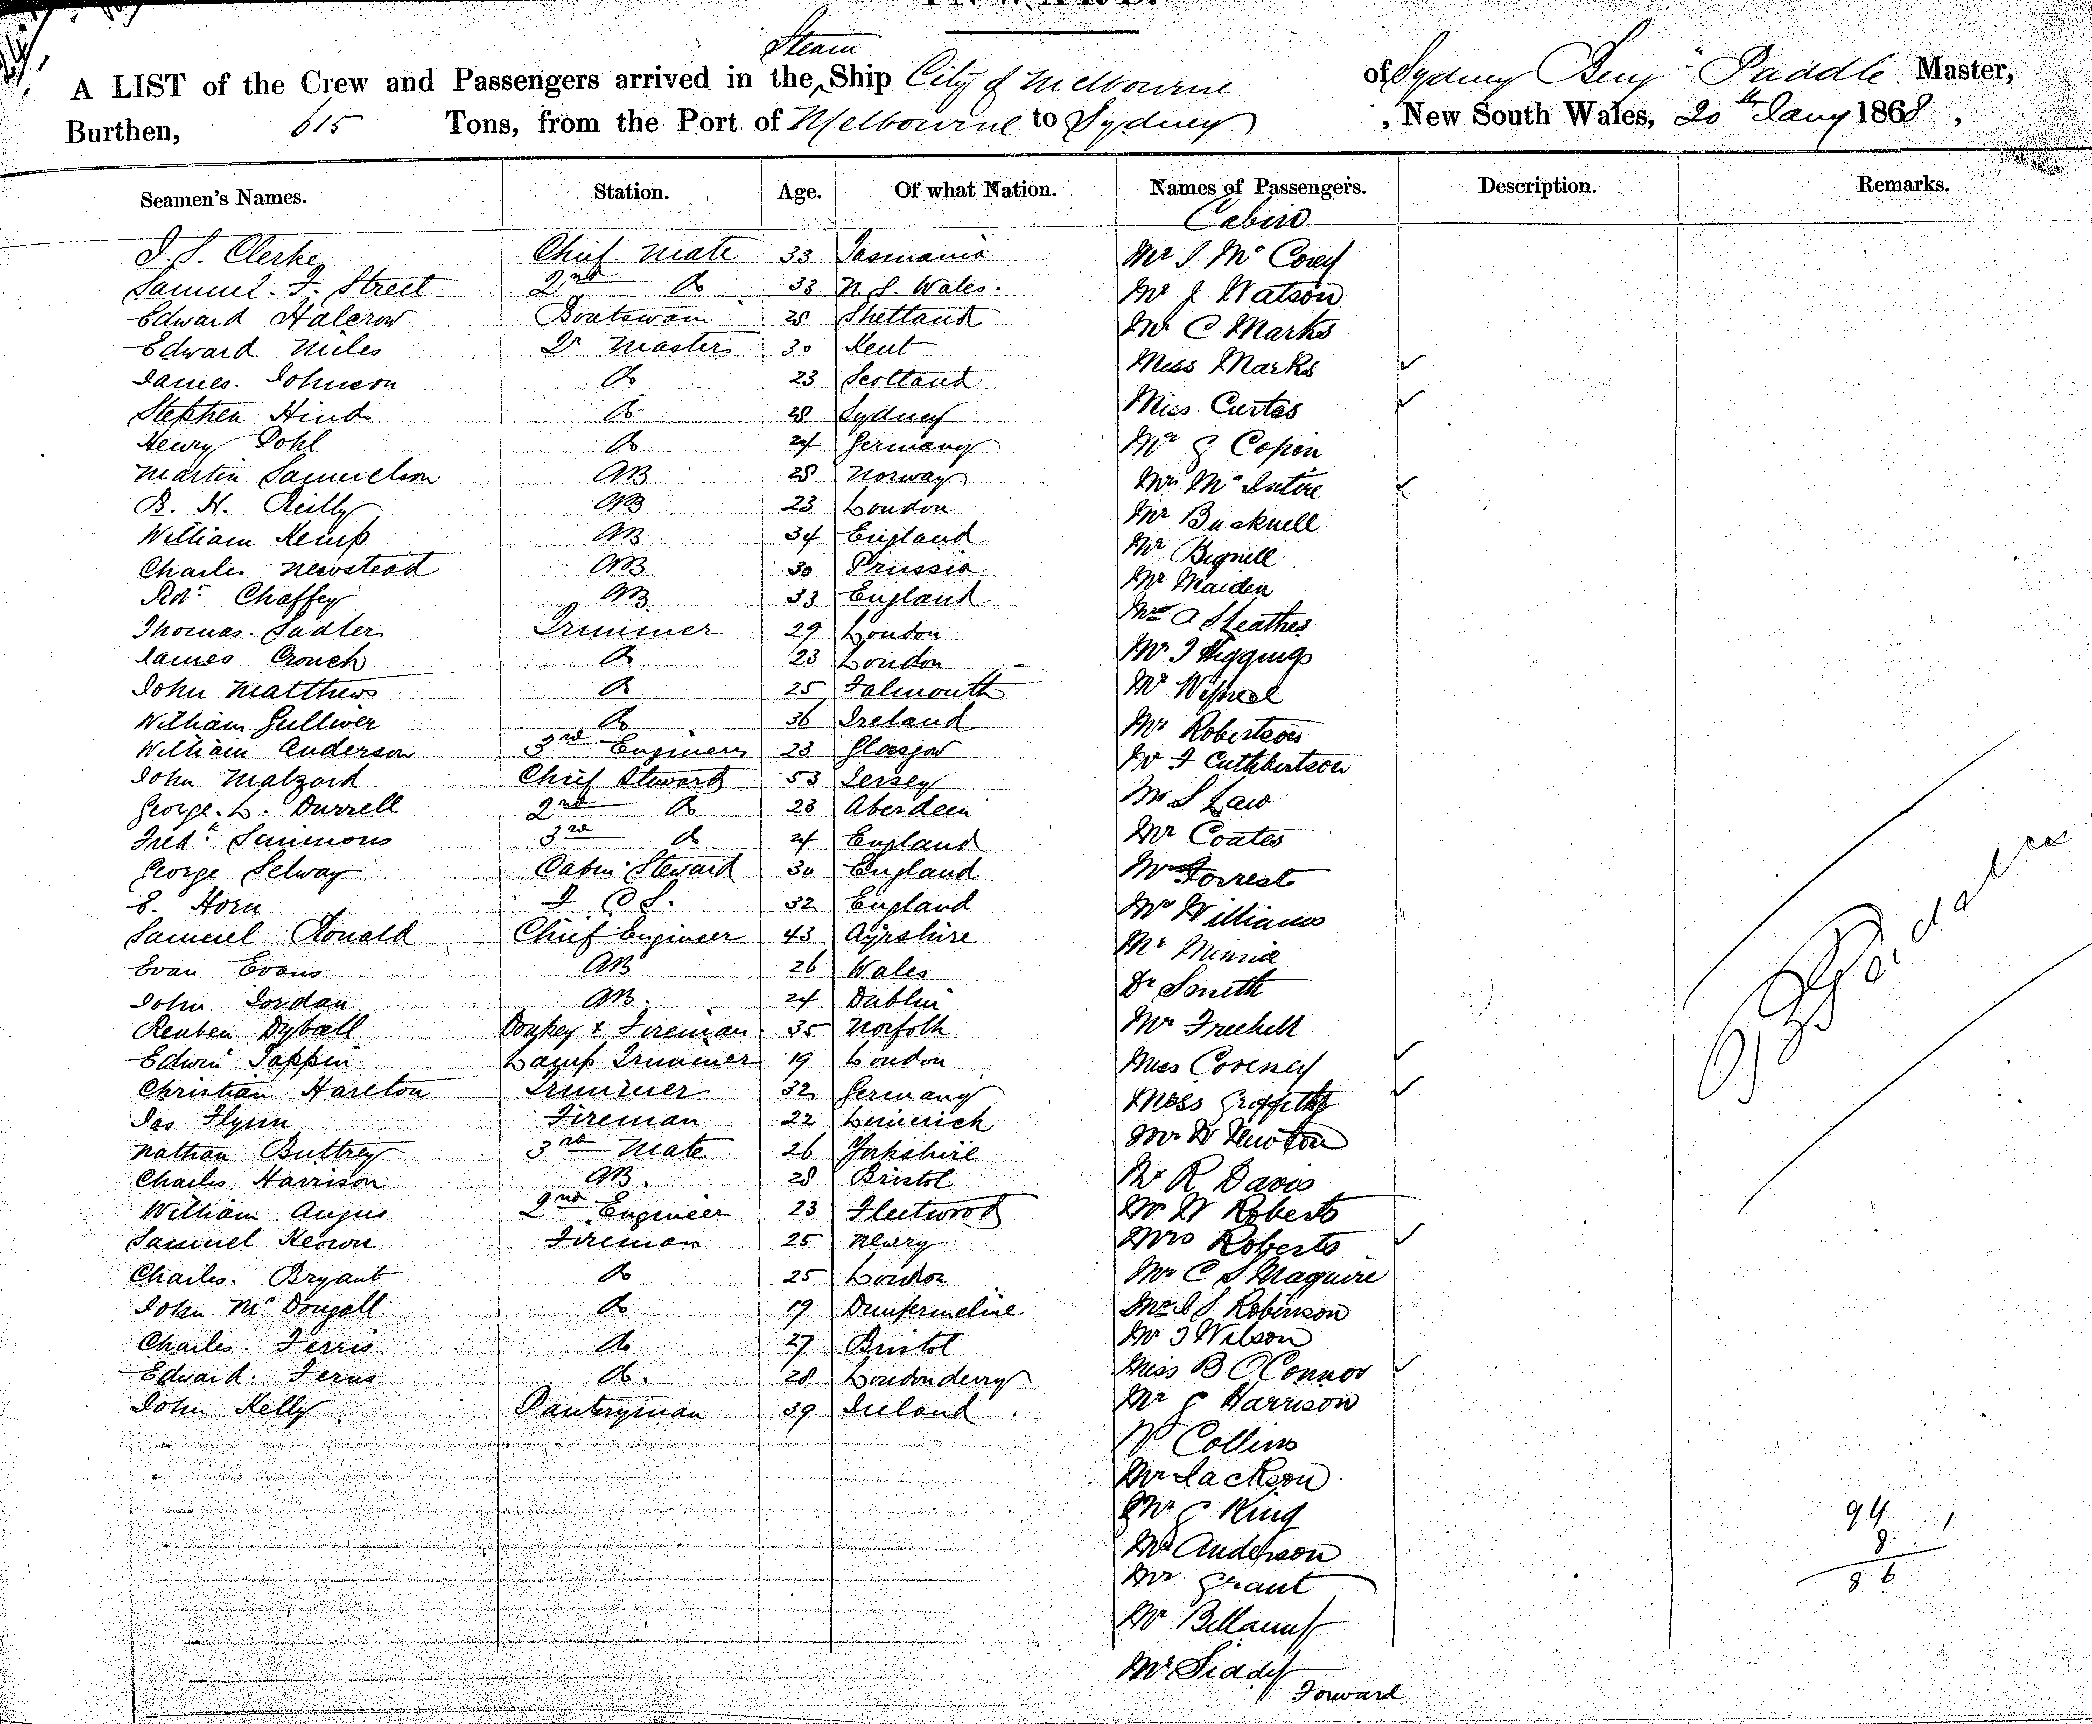 Steam
A LIST of the Crew and Passengers arrived in the Ship City of Melbourne of Sydney Benj Paddle Master,
Burthen, 615 Tons, from the Port of Melbourne to Sydney, New South Wales, 20th Jany 1868,
Seamen's Names. Station. Age. Of what Nation. Names of Passengers. Description. Remarks.
Cabin
Clerke Chief Mate 33 Tasmania
Samuel. F. Street 2nd Do 33 N. S. Wales.
Edward Halcrow Boatswain 28 Shetland
Edward Miles Qr Masters 30 Kent
James. Johnson Do 23 Scotland
Stephen Hind Do 28 Sydney
Henry Pohl Do 24 Germany
Martin Samuelson AB 28 Norway
B. H. Reilly AB 23 London
William Kemp AB 34 England
Charles Newstead AB 30 Prussia
Robt Chaffey AB 33 England
Thomas. Sadler Trimmer 29 London
James Crouch Do 23 London
John Matthews Do 25 Falmouth
William Gulliver Do 36 Ireland
William Anderson 3rd Engineer 23 Glasgow
John Malzard Chief Steward 53 Jersey
George. L. Durrell 2nd Do 23 Aberdeen
Fredk Simmons 3rd Do 24 England
George Selway Cabin Steward 30 England
E. Horn 32 England
Samuel Ronald Chief Engineer 43 Ayrshire
Evan Evans AB 26 Wales
John Jordan AB. 24 Dublin
Reuben Dyball Donkey & Fireman 35 Norfolk
Edwin Tappin Lamp Trimmer 19 London
Christian Harlton Trimmer 32 Germany
Jas Flynn Fireman 22 Limerick
Nathan Buttrey 3rd Mate 26 Yorkshire
Charles Harrison AB. 28 Bristol
William Angus 2nd Engineer 23 Fleetwood
Samuel Keown Fireman 25 Newry
Charles. Bryant Do 25 London
John McDougall Do 19 Dunfermline
Charles. Ferris Do 27 Bristol
Edward. Ferns Do. 28 Londonderry
John Kelly Pantryman 39 Ireland
Mr J Mc Corey
Mr J Watson
Mr C Marks
Miss Marks
Miss Curtis
Mr G Copin
Mrs McIntire
Mr Bucknell
Mr Bignell
Mr Maiden
Mr A Sleathes
Mr J Higgings
Mr
Mr Robertson
Mr J Cuthbertson
Mr S Law
Mr Coates
Mr Forrest
Mr Williams
Mr Minnie
Dr Smith
Mr Frechell
Miss Coveney
Miss Griffiths
Mr W Newton
Mr R Davis
Mr W Roberts
Mrs Roberts
Mr C S Maguire
Mr J S Robinson
Mr J Wilson
Miss B O'Connor
Mr G Harrison
Mr Collins
Mr Jackson
Mr G King
Mr Anderson
Mr Grant
Mr Bellamy
Mr Siddy
Forward
94
8
86